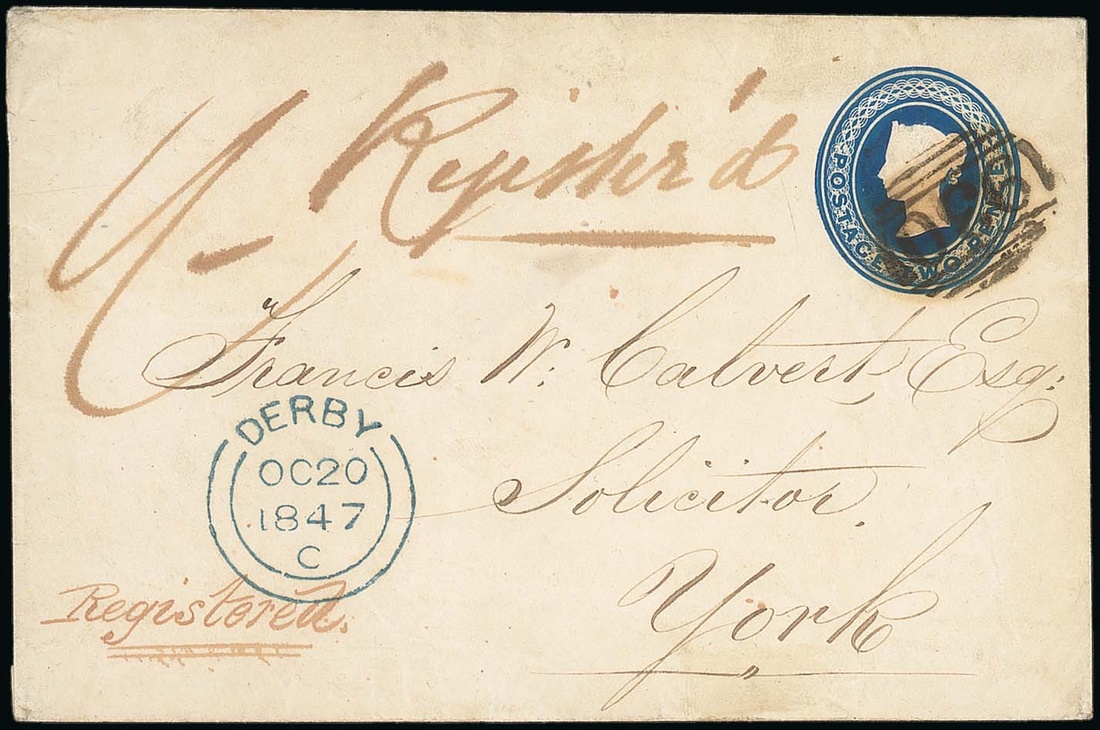 Register'd
POSTAGE TWO PENCE
Francis W. Calvert, Esq.
Solicitor.
York
DERBY
OC20
1847
C
Registered.